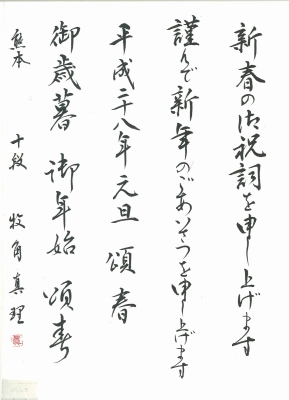 新春の御祝詞を申し上げます
謹んで新年のごあいさつを申し上げます
平成二十八年元旦 頌春
御歳暮 御年始 頌春
熊本 十段 牧角真理